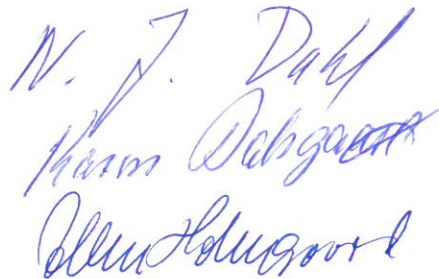 N. J. Dahl
Karen Dalsgaard
Holmgaard